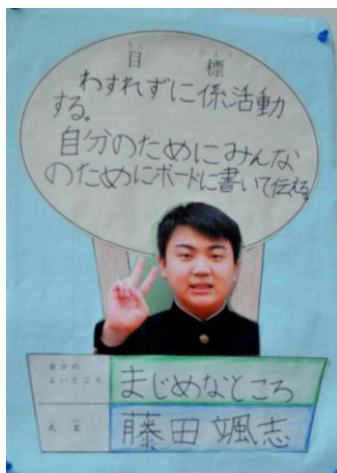 目標
わすれずに係活動
する。
自分のためにみんな
のためにボードに書いて伝える。
自分の
よいところ
まじめなところ
氏名
藤田颯志